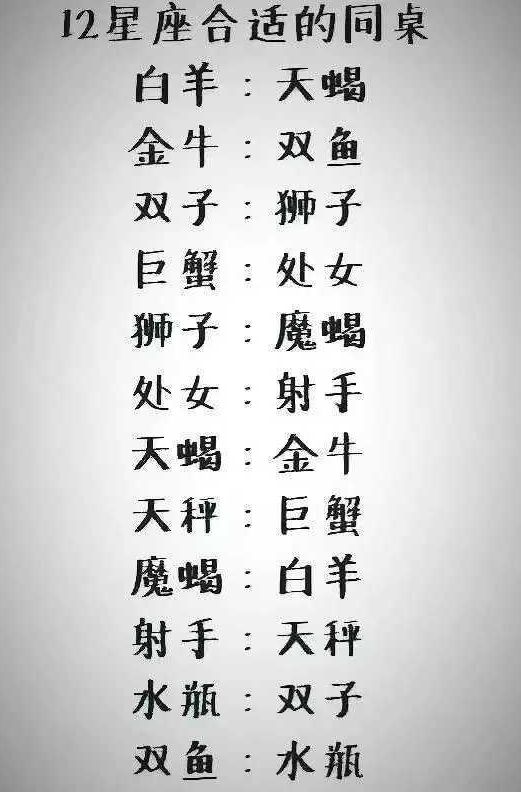 12星座合适的同桌
白羊：天蝎
金牛：双鱼
双子：狮子
巨蟹：处女
狮子：魔蝎
处女：射手
天蝎：金牛
天秤：巨蟹
魔蝎：白羊
射手：天秤
水瓶：双子
双鱼：水瓶